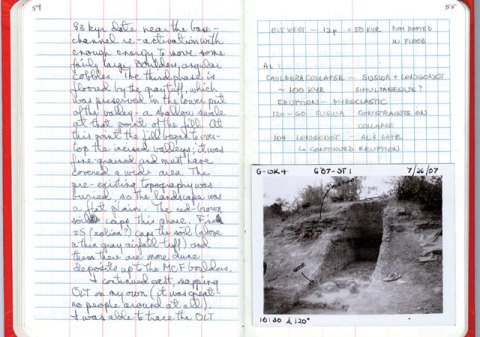 54
83 kyr date near the base -
channel re-activation with
enough energy to move some
fairly large boulders, angular
cobbles. The third phase is
floored by the gray tuff, which
was preserved in the lower part
of the valley - a shallow swale
at that point of the fill. At
this point the fill began to over-
top the incised valleys; it was
fine-grained and must have
covered a wide area. The
pre-existing topography was
buried, so the landscape was
a flat plain. The red-brown
soil caps this phase.
(eolian?) caps the soil (above
a thin gray airfall tuff) and
then there are more dune
deposits up to the MCF boulders.
I continued east, mapping
OLT on my own (it was great -
no people around at all).
I was able to trace the OLT
55
OLT WEST - 12p < 50 KYR
IN FLUOR
AL:
CAULDERA COLLAPSE - SUSWA + LONGONOT
~ 100 KYR SIMULTANEOUS?
ERUPTION - PYROCLASTIC
120-60 SUSWA CONSTRAINTS ON
COLLAPSE
104 LONGONOT AL'S DATE
↳ CONTINUED ERUPTION
G-WK4 G'07-ST1 7/26/07
10:30 120°